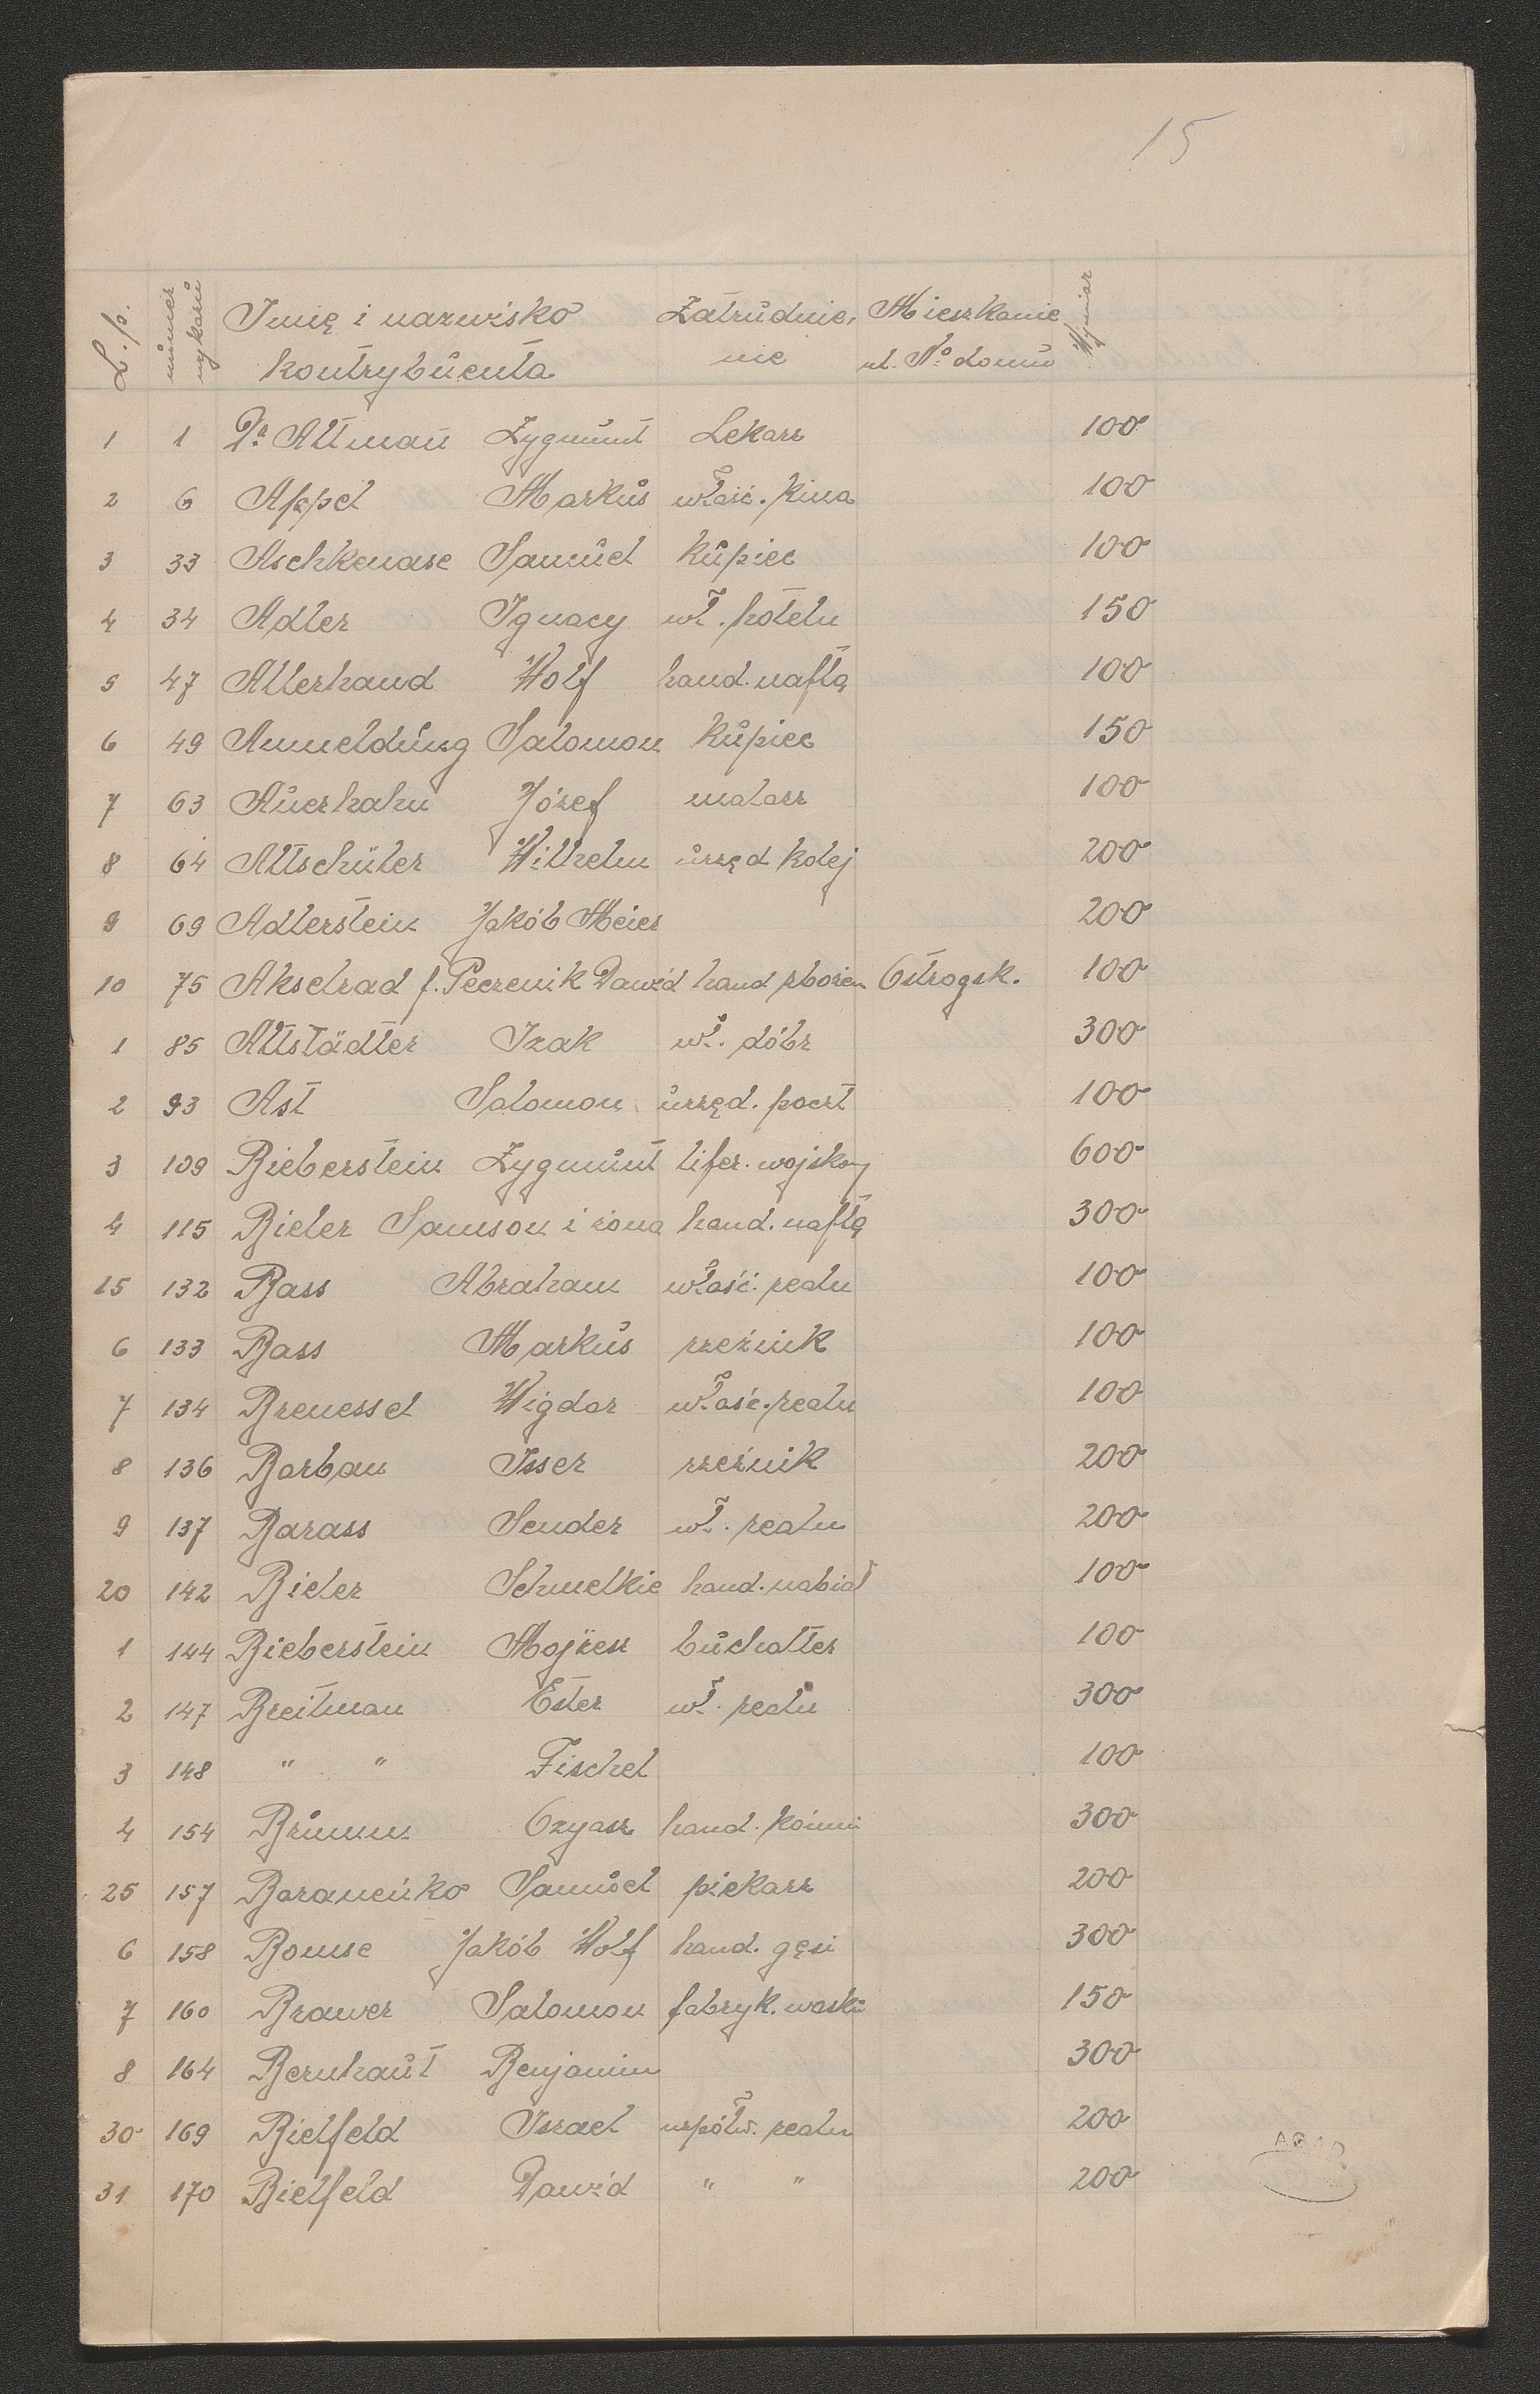 15
L.p. numer wykazu Imię i nazwisko kontrybuenta Zatrudnienie Mieszkanie ul. No domu Wymiar
1 1 Dr Altman Zygmunt Lekarz 100
2 6 Appel Markus właść. kina 100
3 33 Aschkenase Samuel kupiec 100
4 34 Adler Ignacy wł. hotelu 150
5 47 Allerhand Wolf hand. naftą 100
6 49 Anmeldung Salomon kupiec 150
7 63 Auerhahn Józef malarz 100
8 64 Altschüler Wilhelm urzęd kolej 200
9 69 Adlerstein Jakób Meier 200
10 75 Akselrad f. Peczenik Dawid hand zbożem Ostrogsk. 100
1 85 Altstädter Izak wł. dóbr 300
2 93 Ast Salomon urzęd. poczt 100
3 109 Bieberstein Zygmunt lifer. wojskowy 600
4 115 Bieler Samson i żona hand. naftą 300
15 132 Bass Abraham właść. realn 100
6 133 Bass Markus rzeźnik 100
7 134 Brenessel Wigdor właść. realn 100
8 136 Barban Isser rzeźnik 200
9 137 Barass Sender wł. realn 200
20 142 Bieler Schmelkie hand. nabiał 100
1 144 Bieberstein Mojżesz buchalter 100
2 147 Breitman Ester wł. realn 300
3 148 " " Fischel 100
4 154 Brumm Ozyasz hand. końmi 300
25 157 Baraneńko Samuel piekarz 200
6 158 Bomse Jakób Wolf hand. gęsi 300
7 160 Brawer Salomon fabryk. wosku 150
8 164 Bernhaut Benjamin 300
30 169 Bielfeld Israel wspólw. realn 200
31 170 Bielfeld Dawid " " 200
AGAD